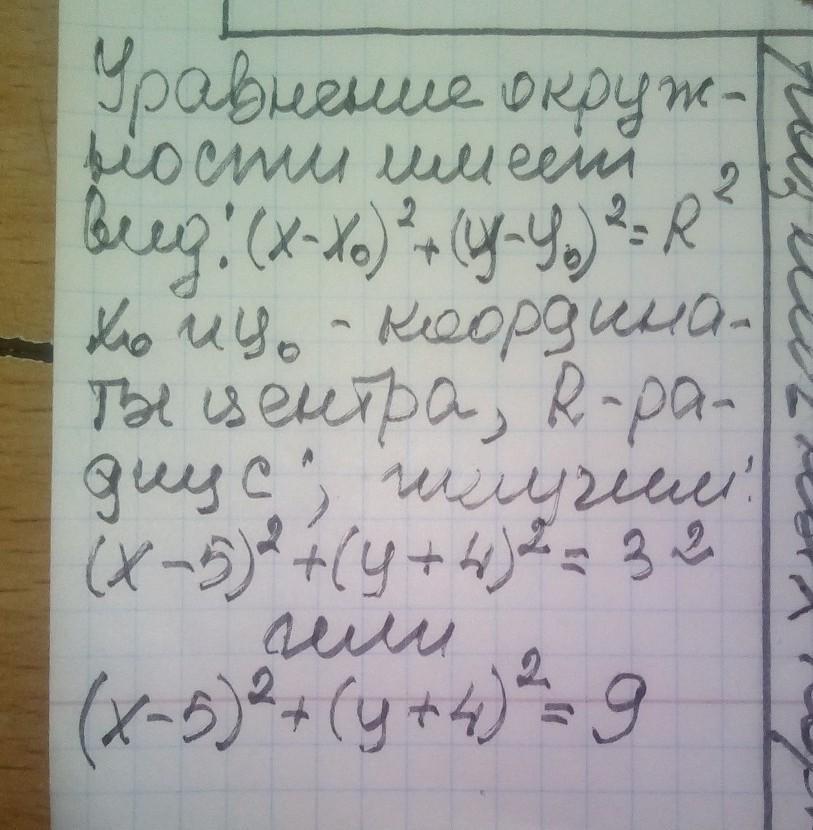 Уравнение окруж-
ности имеет
вид: (x-x₀)²+(y-y₀)²=R²
x₀ и y₀ - координа-
ты центра, R-ра-
диус; получим:
(x-5)²+(y+4)²=3²
или
(x-5)²+(y+4)²=9